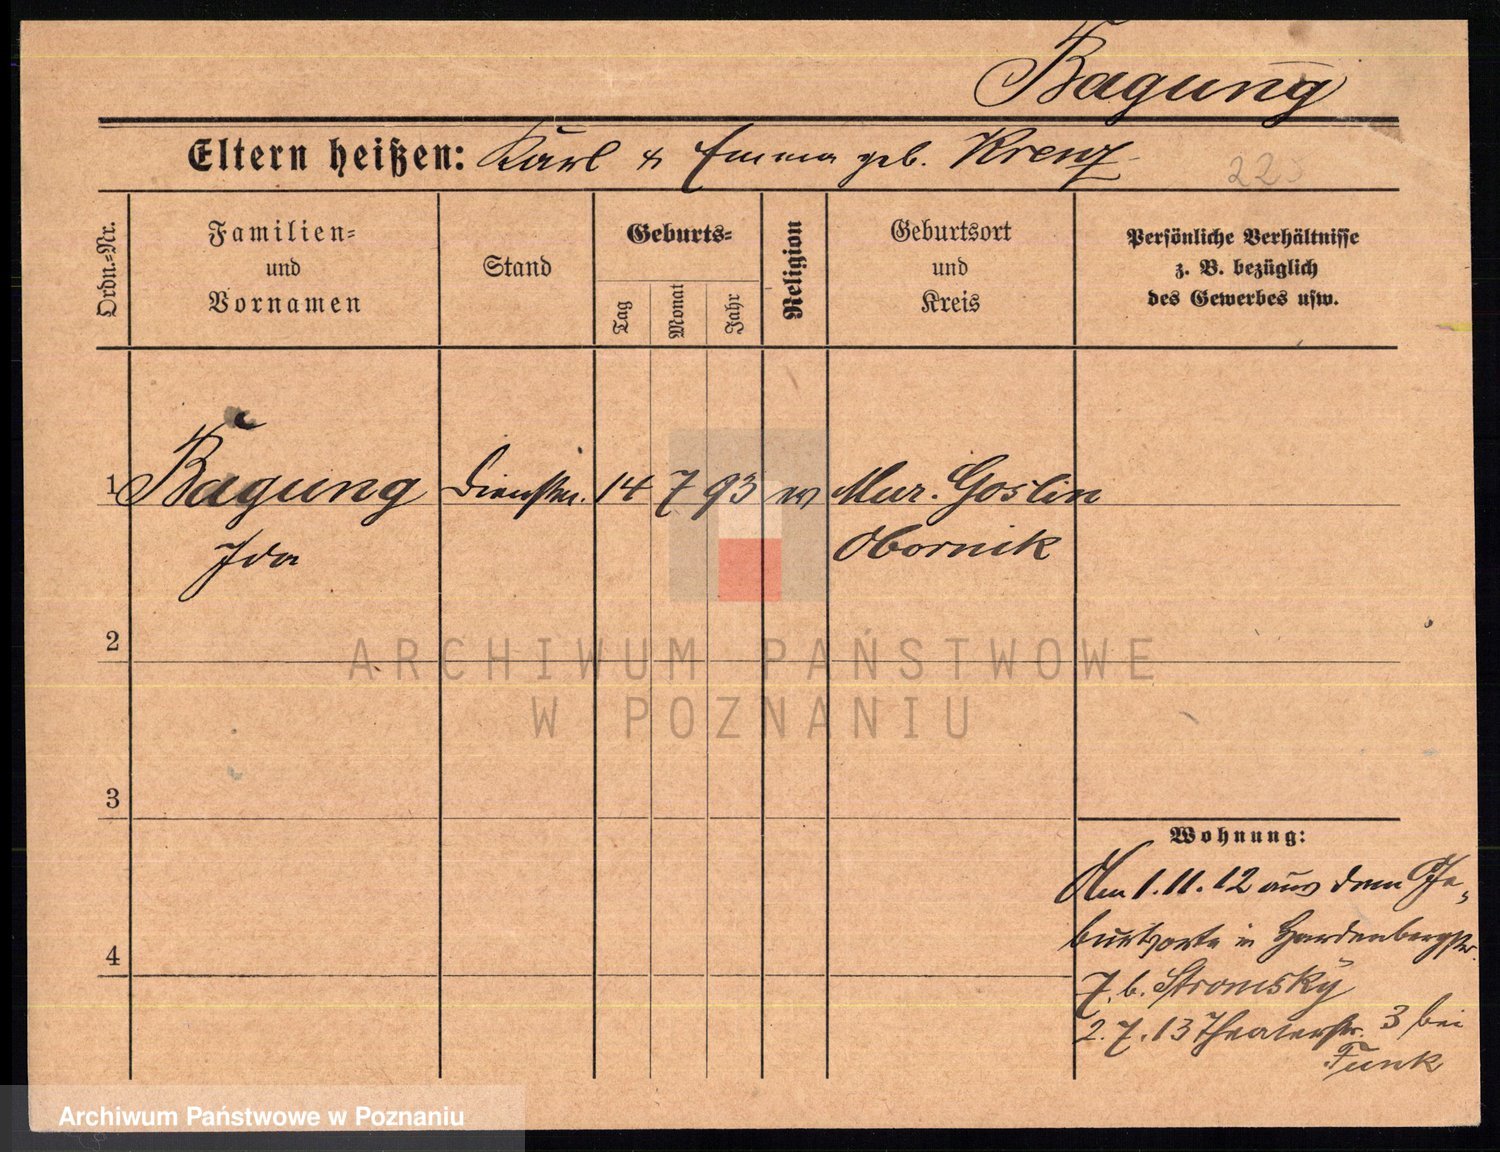 Bagung
Eltern heißen: Karl & Emma geb. Krenz
Ordn.=Nr.
Familien=
und
Vornamen
Stand
Geburts=
Tag
Monat
Jahr
Religion
Geburtsort
und
Kreis
Persönliche Verhältnisse
z. B. bezüglich
des Gewerbes usw.
1 Bagung Dienstm. 14 7 93 ev Mur. Goslin
Ida Obornik
2
ARCHIWUM PAŃSTWOWE
W POZNANIU
3
Wohnung:
Am 1.11.12 aus dem Ge=
burtsorte in Hardenbergstr.
4
7. b. Stromsky
2.7.13 Theaterstr. 3 bei
Funk
Archiwum Państwowe w Poznaniu